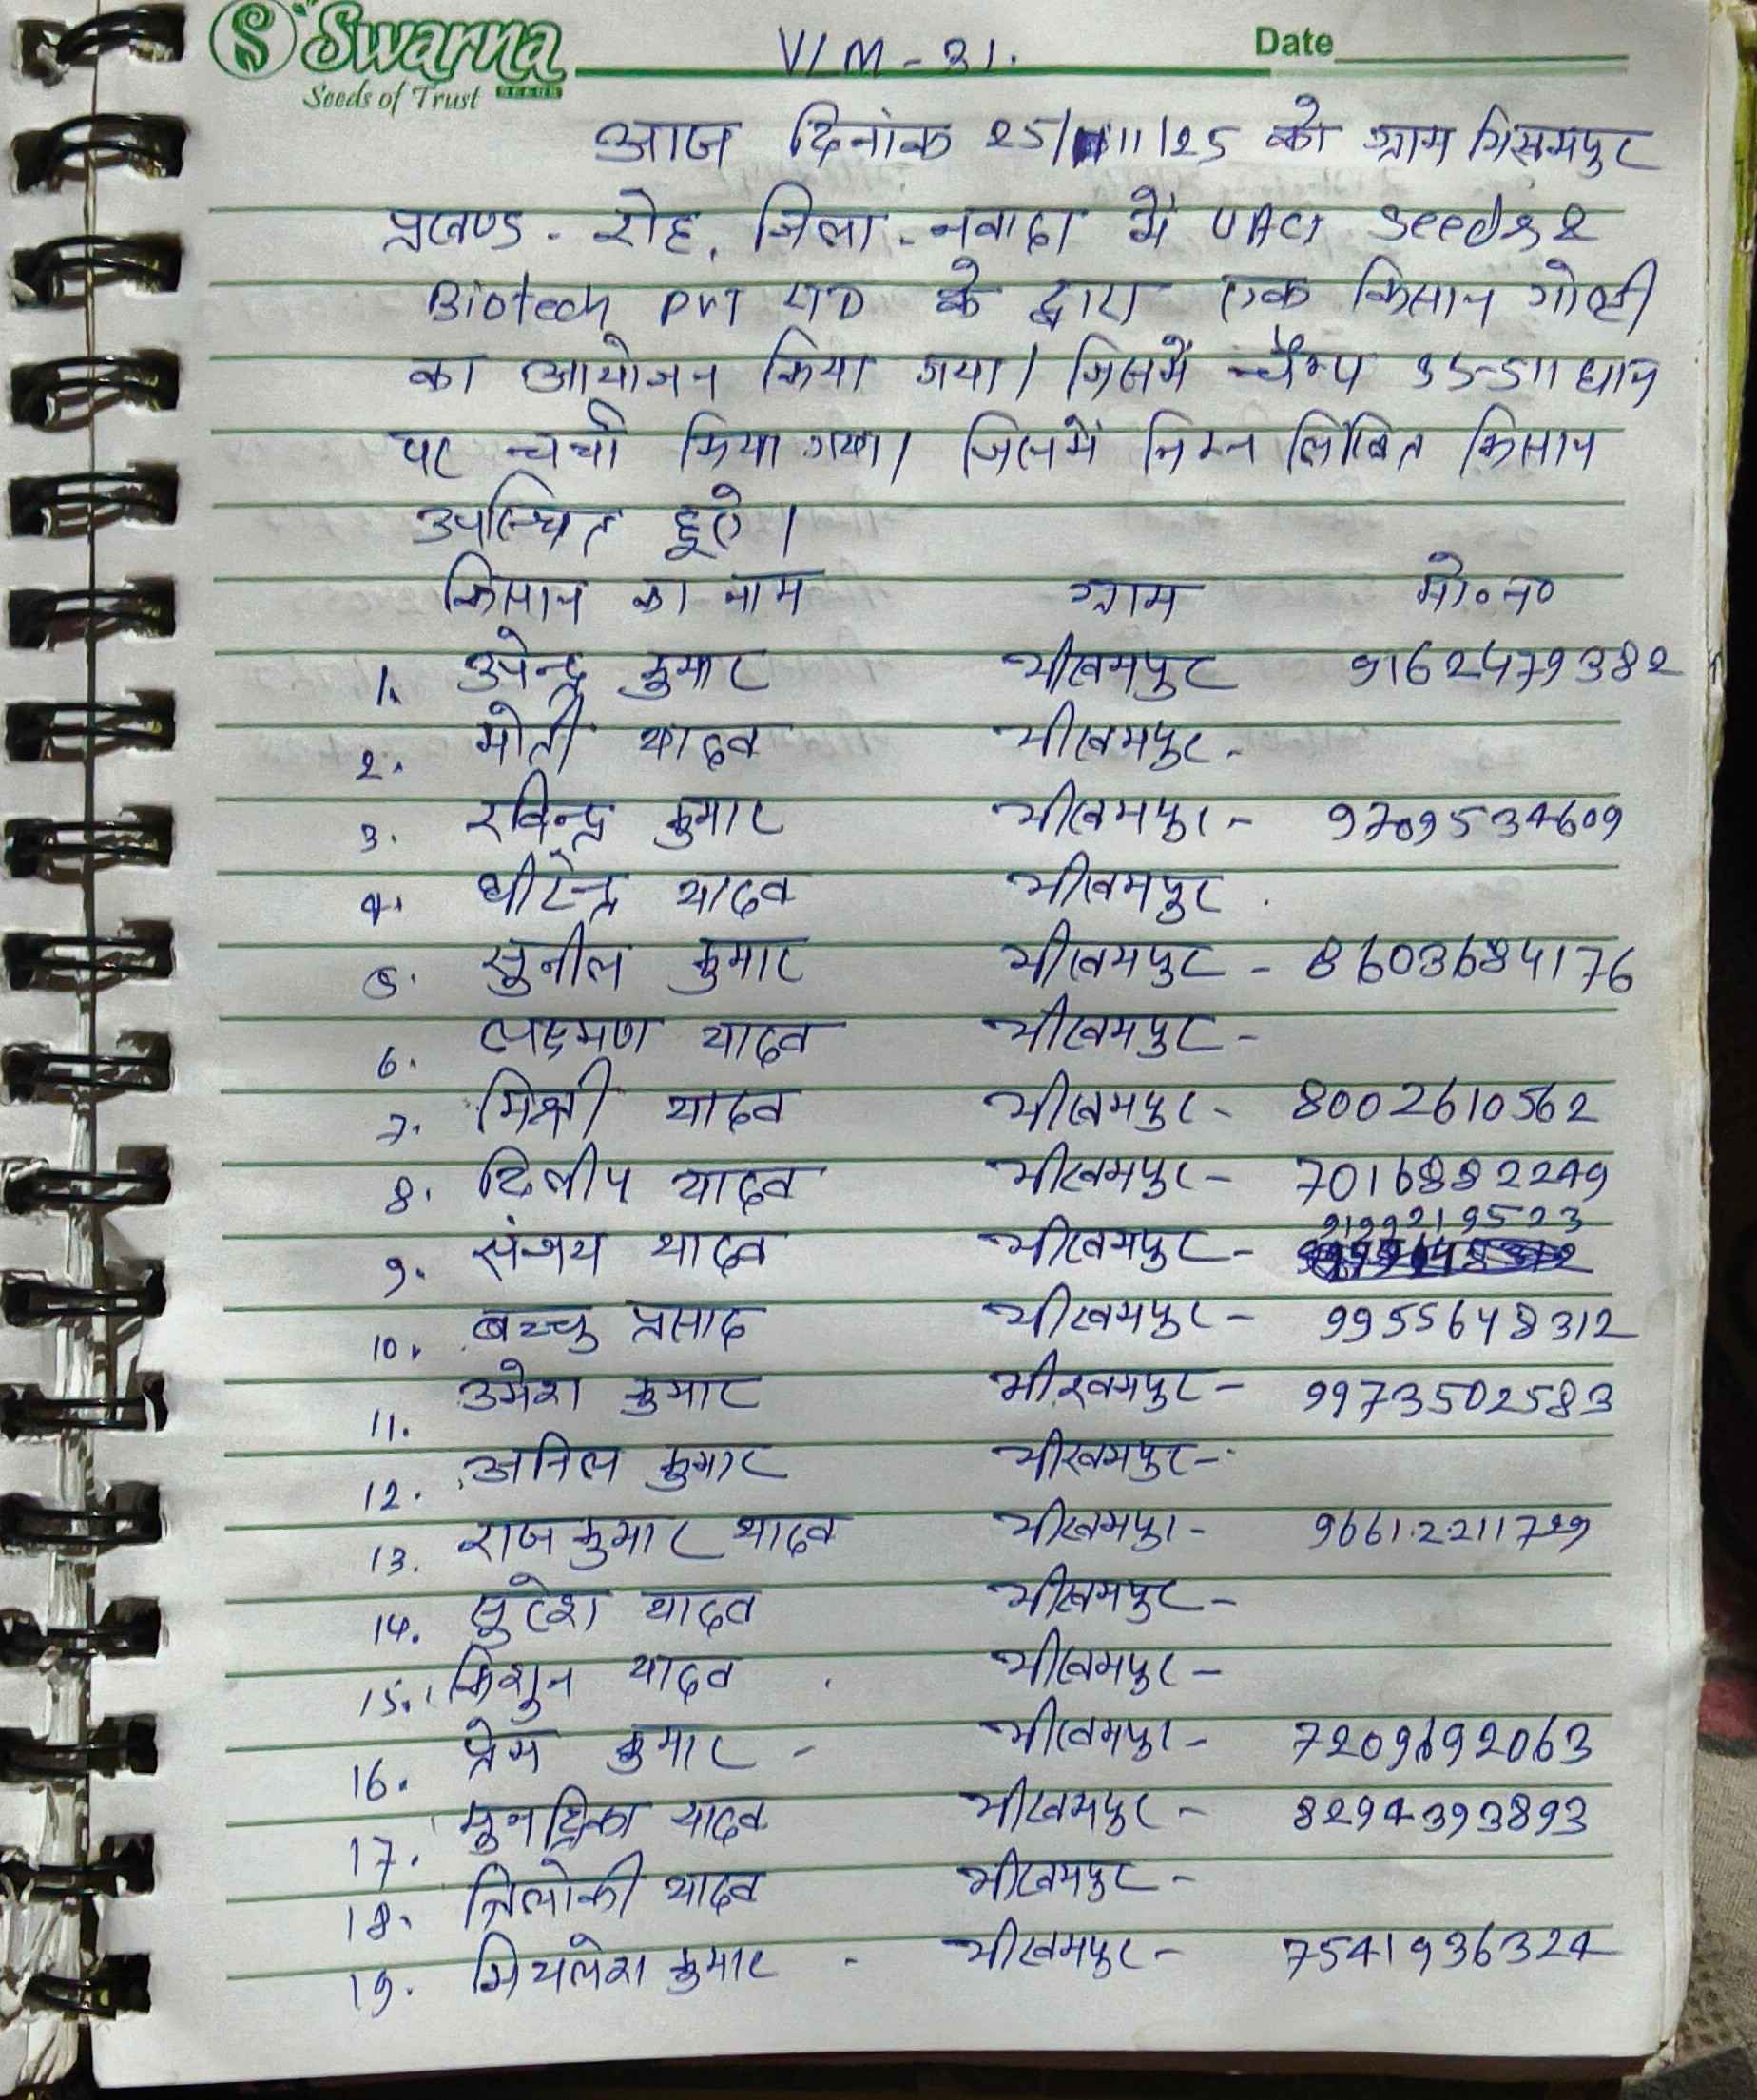 Swarna
Seeds of Trust SEEDS
V/M-31.
Date
आज दिनांक 25/11/25 को ग्राम भिखमपुर
प्रखण्ड - रोह, जिला - नवादा में UAG Seeds &
Biotech PVT LTD के द्वारा एक किसान गोष्ठी
का आयोजन किया गया। जिसमें चैम्प 35-511 धान
पर चर्चा किया गया। जिसमें निम्न लिखित किसान
उपस्थित हुऐ।
किसान का नाम ग्राम मो० न०
1. उपेन्द्र कुमार भीखमपुर 9162479382
2. मोती यादव भीखमपुर -
3. रविन्द्र कुमार भीखमपुर - 9709534609
4. धीरेन्द्र यादव भीखमपुर .
5. सुनील कुमार भीखमपुर - 8603684176
6. लक्ष्मण यादव भीखमपुर -
7. मिश्री यादव भीखमपुर - 8002610562
8. दिलीप यादव भीखमपुर - 7016882249
9. संजय यादव भीखमपुर - 9199219523
10. बच्चु प्रसाद भीखमपुर - 9955648312
11. उमेश कुमार भीखमपुर - 9973502583
12. अनिल कुमार भीखमपुर -
13. राज कुमार यादव भीखमपुर - 96612211729
14. सुरेश यादव भीखमपुर -
15. किशुन यादव भीखमपुर -
16. प्रेम कुमार - भीखमपुर - 7209692063
17. मुनद्रिका यादव भीखमपुर - 8294393893
18. त्रिलोकी यादव भीखमपुर -
19. मिथलेश कुमार - भीखमपुर - 7541936324